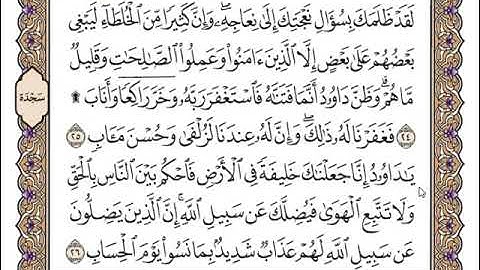 لَقَدْ ظَلَمَكَ بِسُؤَالِ نَعْجَتِكَ إِلَىٰ نِعَاجِهِۦۖ وَإِنَّ كَثِيرًا مِّنَ ٱلْخُلَطَآءِ لَيَبْغِى
بَعْضُهُمْ عَلَىٰ بَعْضٍ إِلَّا ٱلَّذِينَ ءَامَنُوا۟ وَعَمِلُوا۟ ٱلصَّـٰلِحَـٰتِ وَقَلِيلٌ
مَّا هُمْۗ وَظَنَّ دَاوُۥدُ أَنَّمَا فَتَنَّـٰهُ فَٱسْتَغْفَرَ رَبَّهُۥ وَخَرَّ رَاكِعًا وَأَنَابَ ۩
سَجْدَة
٢٤ فَغَفَرْنَا لَهُۥ ذَٰلِكَۖ وَإِنَّ لَهُۥ عِندَنَا لَزُلْفَىٰ وَحُسْنَ مَـَٔابٍ ٢٥
يَـٰدَاوُۥدُ إِنَّا جَعَلْنَـٰكَ خَلِيفَةً فِى ٱلْأَرْضِ فَٱحْكُم بَيْنَ ٱلنَّاسِ بِٱلْحَقِّ
وَلَا تَتَّبِعِ ٱلْهَوَىٰ فَيُضِلَّكَ عَن سَبِيلِ ٱللَّهِۚ إِنَّ ٱلَّذِينَ يَضِلُّونَ
عَن سَبِيلِ ٱللَّهِ لَهُمْ عَذَابٌ شَدِيدٌۢ بِمَا نَسُوا۟ يَوْمَ ٱلْحِسَابِ ٢٦